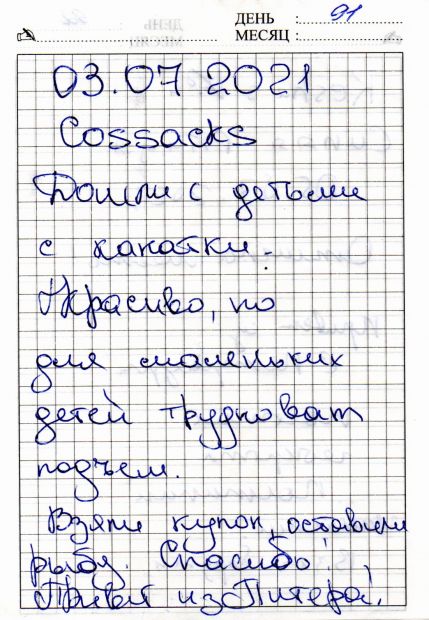 ДЕНЬ : 91
МЕСЯЦ :
03.07 2021
Cossacks
Дошли с детьми
с канатки.
Красиво, но
для маленьких
детей трудноват
подъем.
Взяли купон, оставили
рыбу. Спасибо!
Привет из Питера!